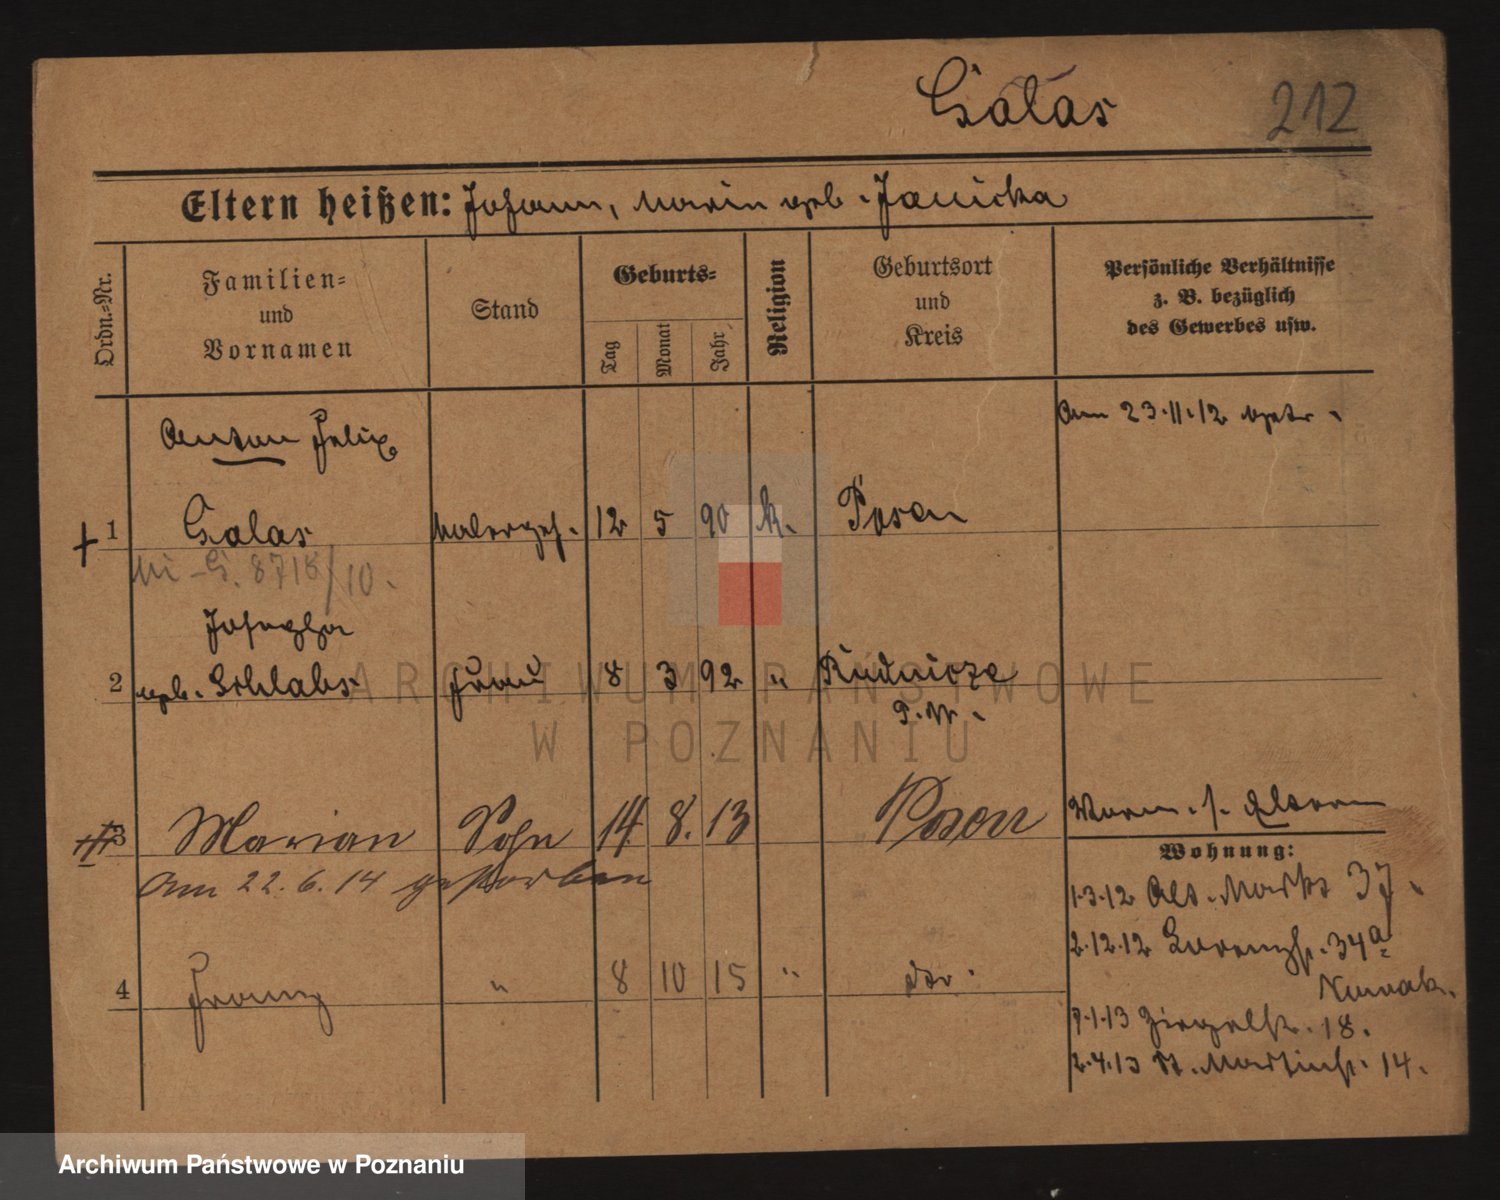 Galas
212
Eltern heißen: Johann, Maria geb. Janicka
Ordn.-Nr.
Familien-
und
Vornamen
Stand
Geburts-
Tag
Monat
Jahr
Religion
Geburtsort
und
Kreis
Persönliche Verhältnisse
z. B. bezüglich
des Gewerbes usw.
Am 23.11.12 getr.
Anton Felix
1 Galas Malergeh. 12 5 90 k. Posen
8718/10.
Josepha
2 geb. Schlabs Frau 8 3 92 " Rudnicze
P. W.
3 Marian Sohn 14. 8. 13 Posen
Am 22. 6. 14 gestorben
4 Franz " 8 10 15 " dto.
Eltern
Wohnung:
1.3.12 Alt. Markt 37
2.12.12 Lorenzstr. 34a
Nowak.
7.1.13 Ziegelstr. 18.
2.4.13 St. Martinstr. 14.
ARCHIWUM PAŃSTWOWE
W POZNANIU
Archiwum Państwowe w Poznaniu